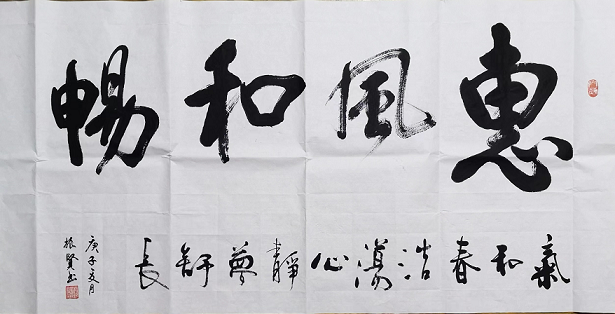 惠風和暢
氣和春浩蕩心靜夢舒長
庚子夏月
振賢書